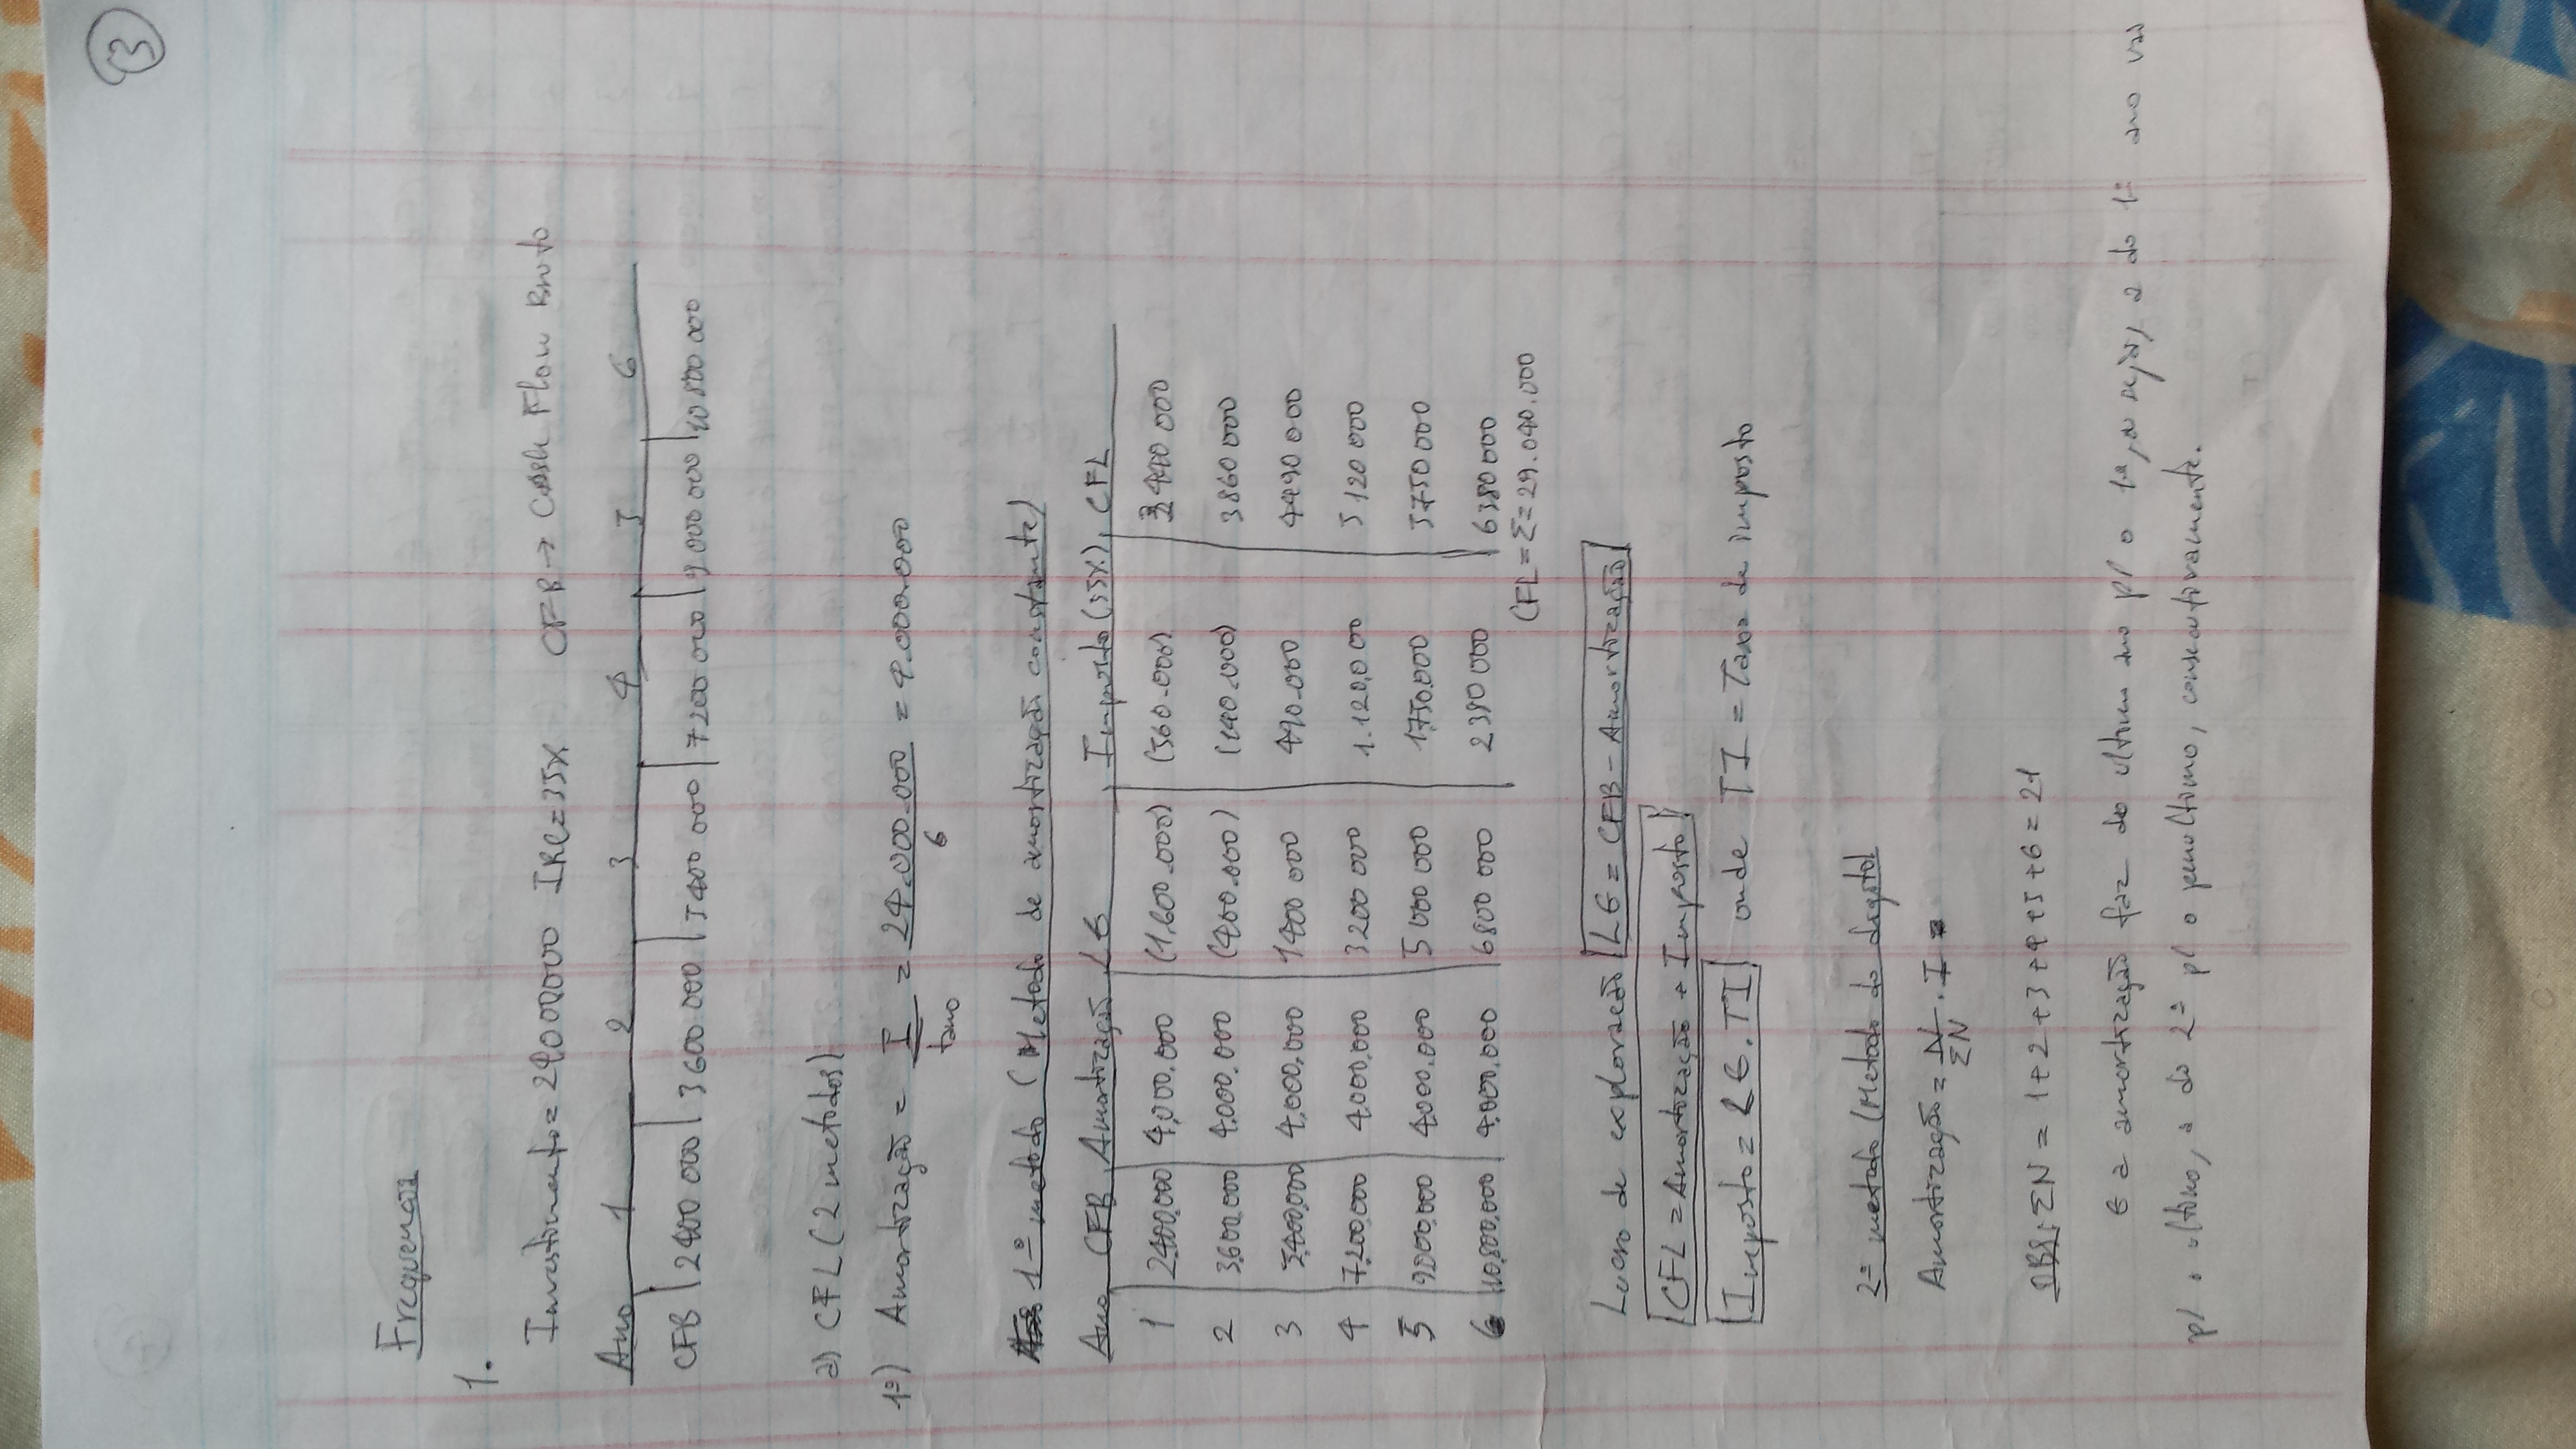 3
Frequencia
1.
Investimento = 24000000 IRC = 35% CFB → Cash Flow Bruto
Ano 1 2 3 4 5 6
CFB 2400 000 3600 000 5400 000 7200 000 9000 000 10800 000
a) CFL (2 metodos)
1º) Amortização = I/tano = 24.000.000/6 = 4.000.000
1º metodo (Metodo de amortização constante)
Ano CFB Amortização LE Imposto (35%) CFL
1 2.400.000 4,000.000 (1,600.000) (560.000) 3440 000
2 3.600.000 4.000.000 (400.000) (140.000) 3860 000
3 5.400,000 4,000.000 1400 000 490.000 4490 000
4 7.200,000 4000,000 3200 000 1.120,000 5120 000
5 9000,000 4000.000 5000 000 1750.000 5750 000
6 10,800.000 4.000.000 6800 000 2380 000 6380 000
CFL = Σ = 29.040.000
Lucro de exploração LE = CFB - Amortização
CFL = Amortização + Imposto
Imposto = LE . TI onde TI = Taxa de imposto
2º metodo (Metodo do digito)
Amortização = N/ΣN . I =
OBS: ΣN = 1+2+3+4+5+6 = 21
E a amortização faz do ultimo ano p/ o 1º, ou seja, a do 1º ano vai
p/ o ultimo, a do 2º p/ o penultimo, consecutivamente.